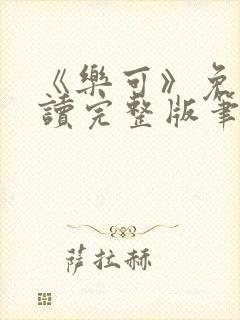 《樂可》免
讀完整版筆
萨拉赫